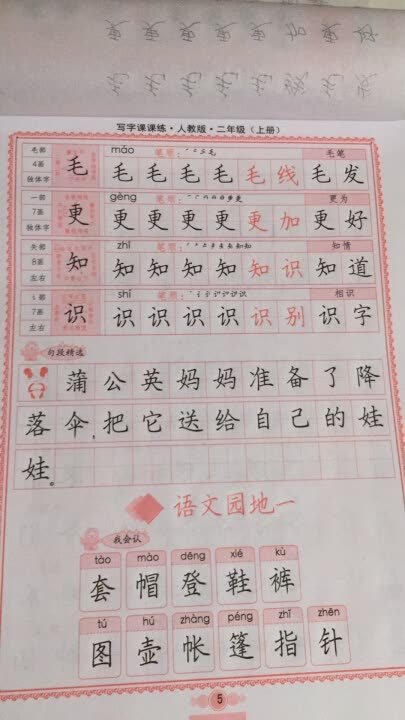 写字课课练·人教版·二年级（上册）
毛部 4画 独体字 毛 máo 笔顺： 毛笔
毛 毛 毛 毛 毛 线 毛 发
一部 7画 独体字 更 gèng 笔顺： 更为
更 更 更 更 更 加 更 好
矢部 8画 左右 知 zhī 笔顺： 知情
知 知 知 知 知 识 知 道
讠部 7画 左右 识 shí 笔顺： 相识
识 识 识 识 识 别 识 字
句段精选
蒲公英妈妈准备了降
落伞，把它送给自己的娃
娃。
语文园地一
我会认
tào mào dēng xié kù
套 帽 登 鞋 裤
tú hú zhàng péng zhǐ zhēn
图 壶 帐 篷 指 针
5